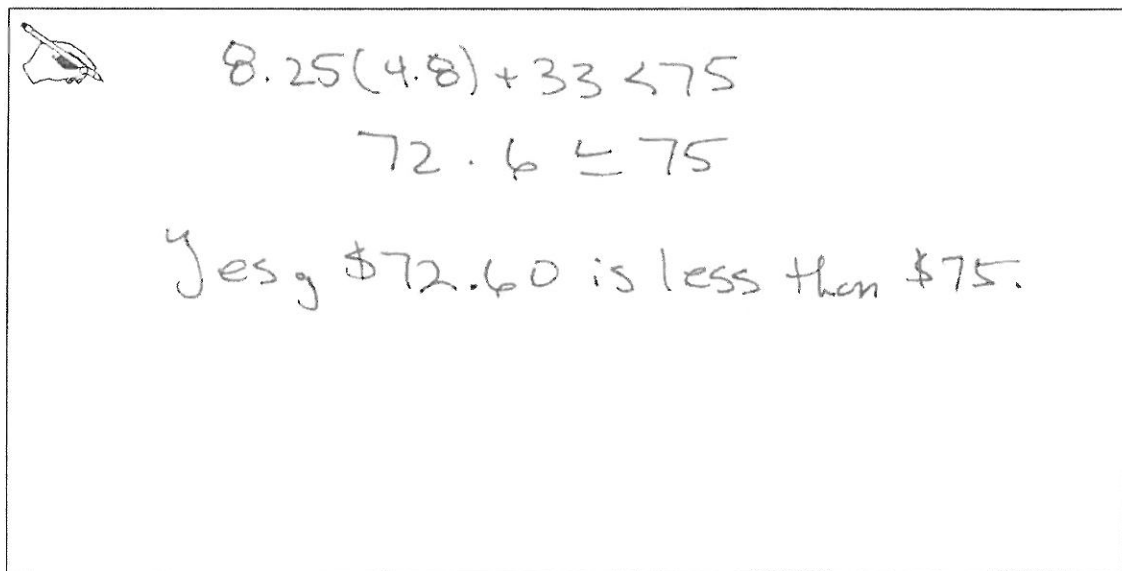 8.25(4.8) + 33 < 75
72.6 ≤ 75
Yes, $72.60 is less than $75.